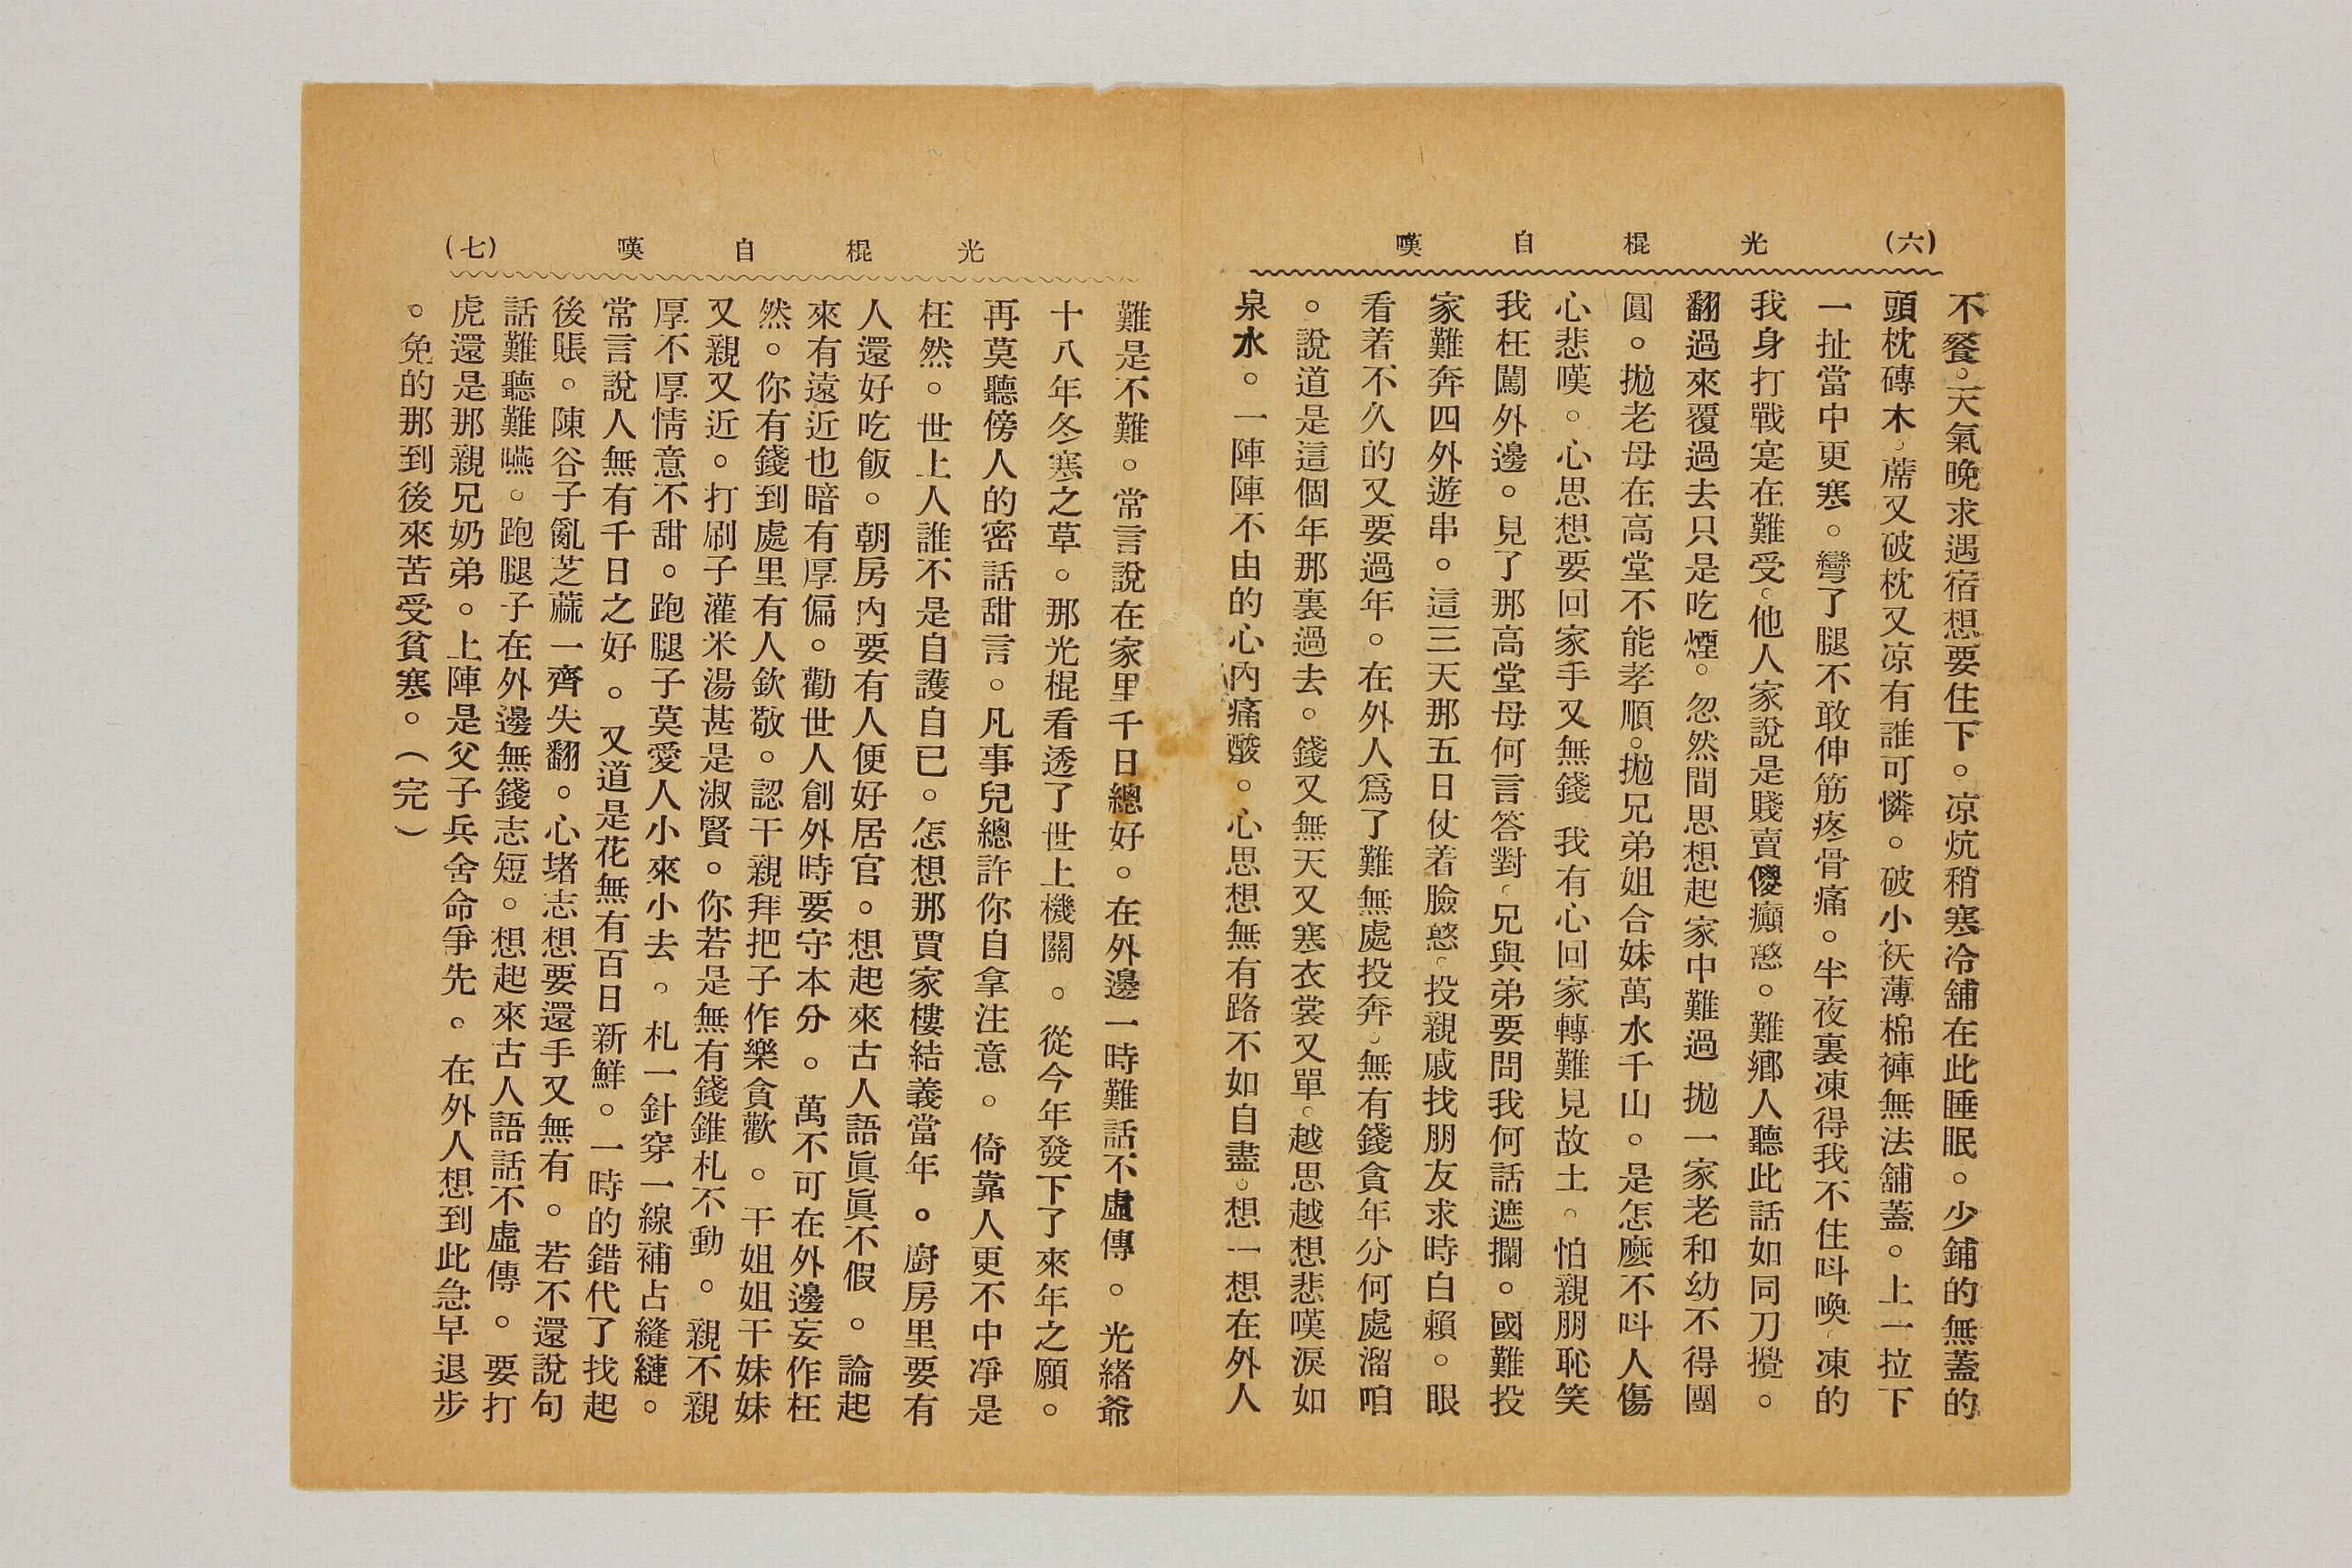 (六)　光棍自嘆
不餐。天氣晚求遇宿想要住下。凉炕稍寒冷舖在此睡眠。少鋪的無蓋的
頭枕磚木。蓆又破枕又凉有誰可憐。破小袄薄棉褲無法舖蓋。上一拉下
一扯當中更寒。彎了腿不敢伸筋疼骨痛。半夜裏凍得我不住呌喚。凍的
我身打戰寔在難受。他人家說是賤賣傻癲憨。難鄉人聽此話如同刀攪。
翻過來覆過去只是吃煙。忽然間思想起家中難過　拋一家老和幼不得團
圓。拋老母在高堂不能孝順。拋兄弟姐合妹萬水千山。是怎麽不呌人傷
心悲嘆。心思想要回家手又無錢　我有心回家轉難見故土。怕親朋恥笑
我枉闖外邊。見了那高堂母何言答對。兄與弟要問我何話遮攔。國難投
家難奔四外遊串。這三天那五日仗着臉憨。投親戚找朋友求時白賴。眼
看着不久的又要過年。在外人爲了難無處投奔。無有錢貪年分何處溜咱
。說道是這個年那裏過去。錢又無天又寒衣裳又單。越思越想悲嘆淚如
泉水。一陣陣不由的心內痛酸。心思想無有路不如自盡。想一想在外人
光棍自嘆　(七)
難是不難。常言說在家里千日總好。在外邊一時難話不虛傳。光緒爺
十八年冬寒之草。那光棍看透了世上機關。從今年發下了來年之願。
再莫聽傍人的密話甜言。凡事兒總許你自拿注意。倚靠人更不中凈是
枉然。世上人誰不是自護自已。怎想那賈家樓結義當年。廚房里要有
人還好吃飯。朝房內要有人便好居官。想起來古人語眞眞不假。論起
來有遠近也暗有厚偏。勸世人創外時要守本分。萬不可在外邊妄作枉
然。你有錢到處里有人欽敬。認干親拜把子作樂貪歡。干姐姐干妹妹
又親又近。打刷子灌米湯甚是淑賢。你若是無有錢錐札不動。親不親
厚不厚情意不甜。跑腿子莫愛人小來小去。札一針穿一線補占縫縺。
常言說人無有千日之好。又道是花無有百日新鮮。一時的錯代了找起
後賬。陳谷子亂芝蔴一齊失翻。心堵志想要還手又無有。若不還說句
話難聽難嚥。跑腿子在外邊無錢志短。想起來古人語話不虛傳。要打
虎還是那親兄奶弟。上陣是父子兵舍命爭先。在外人想到此急早退步
。免的那到後來苦受貧寒。（完）